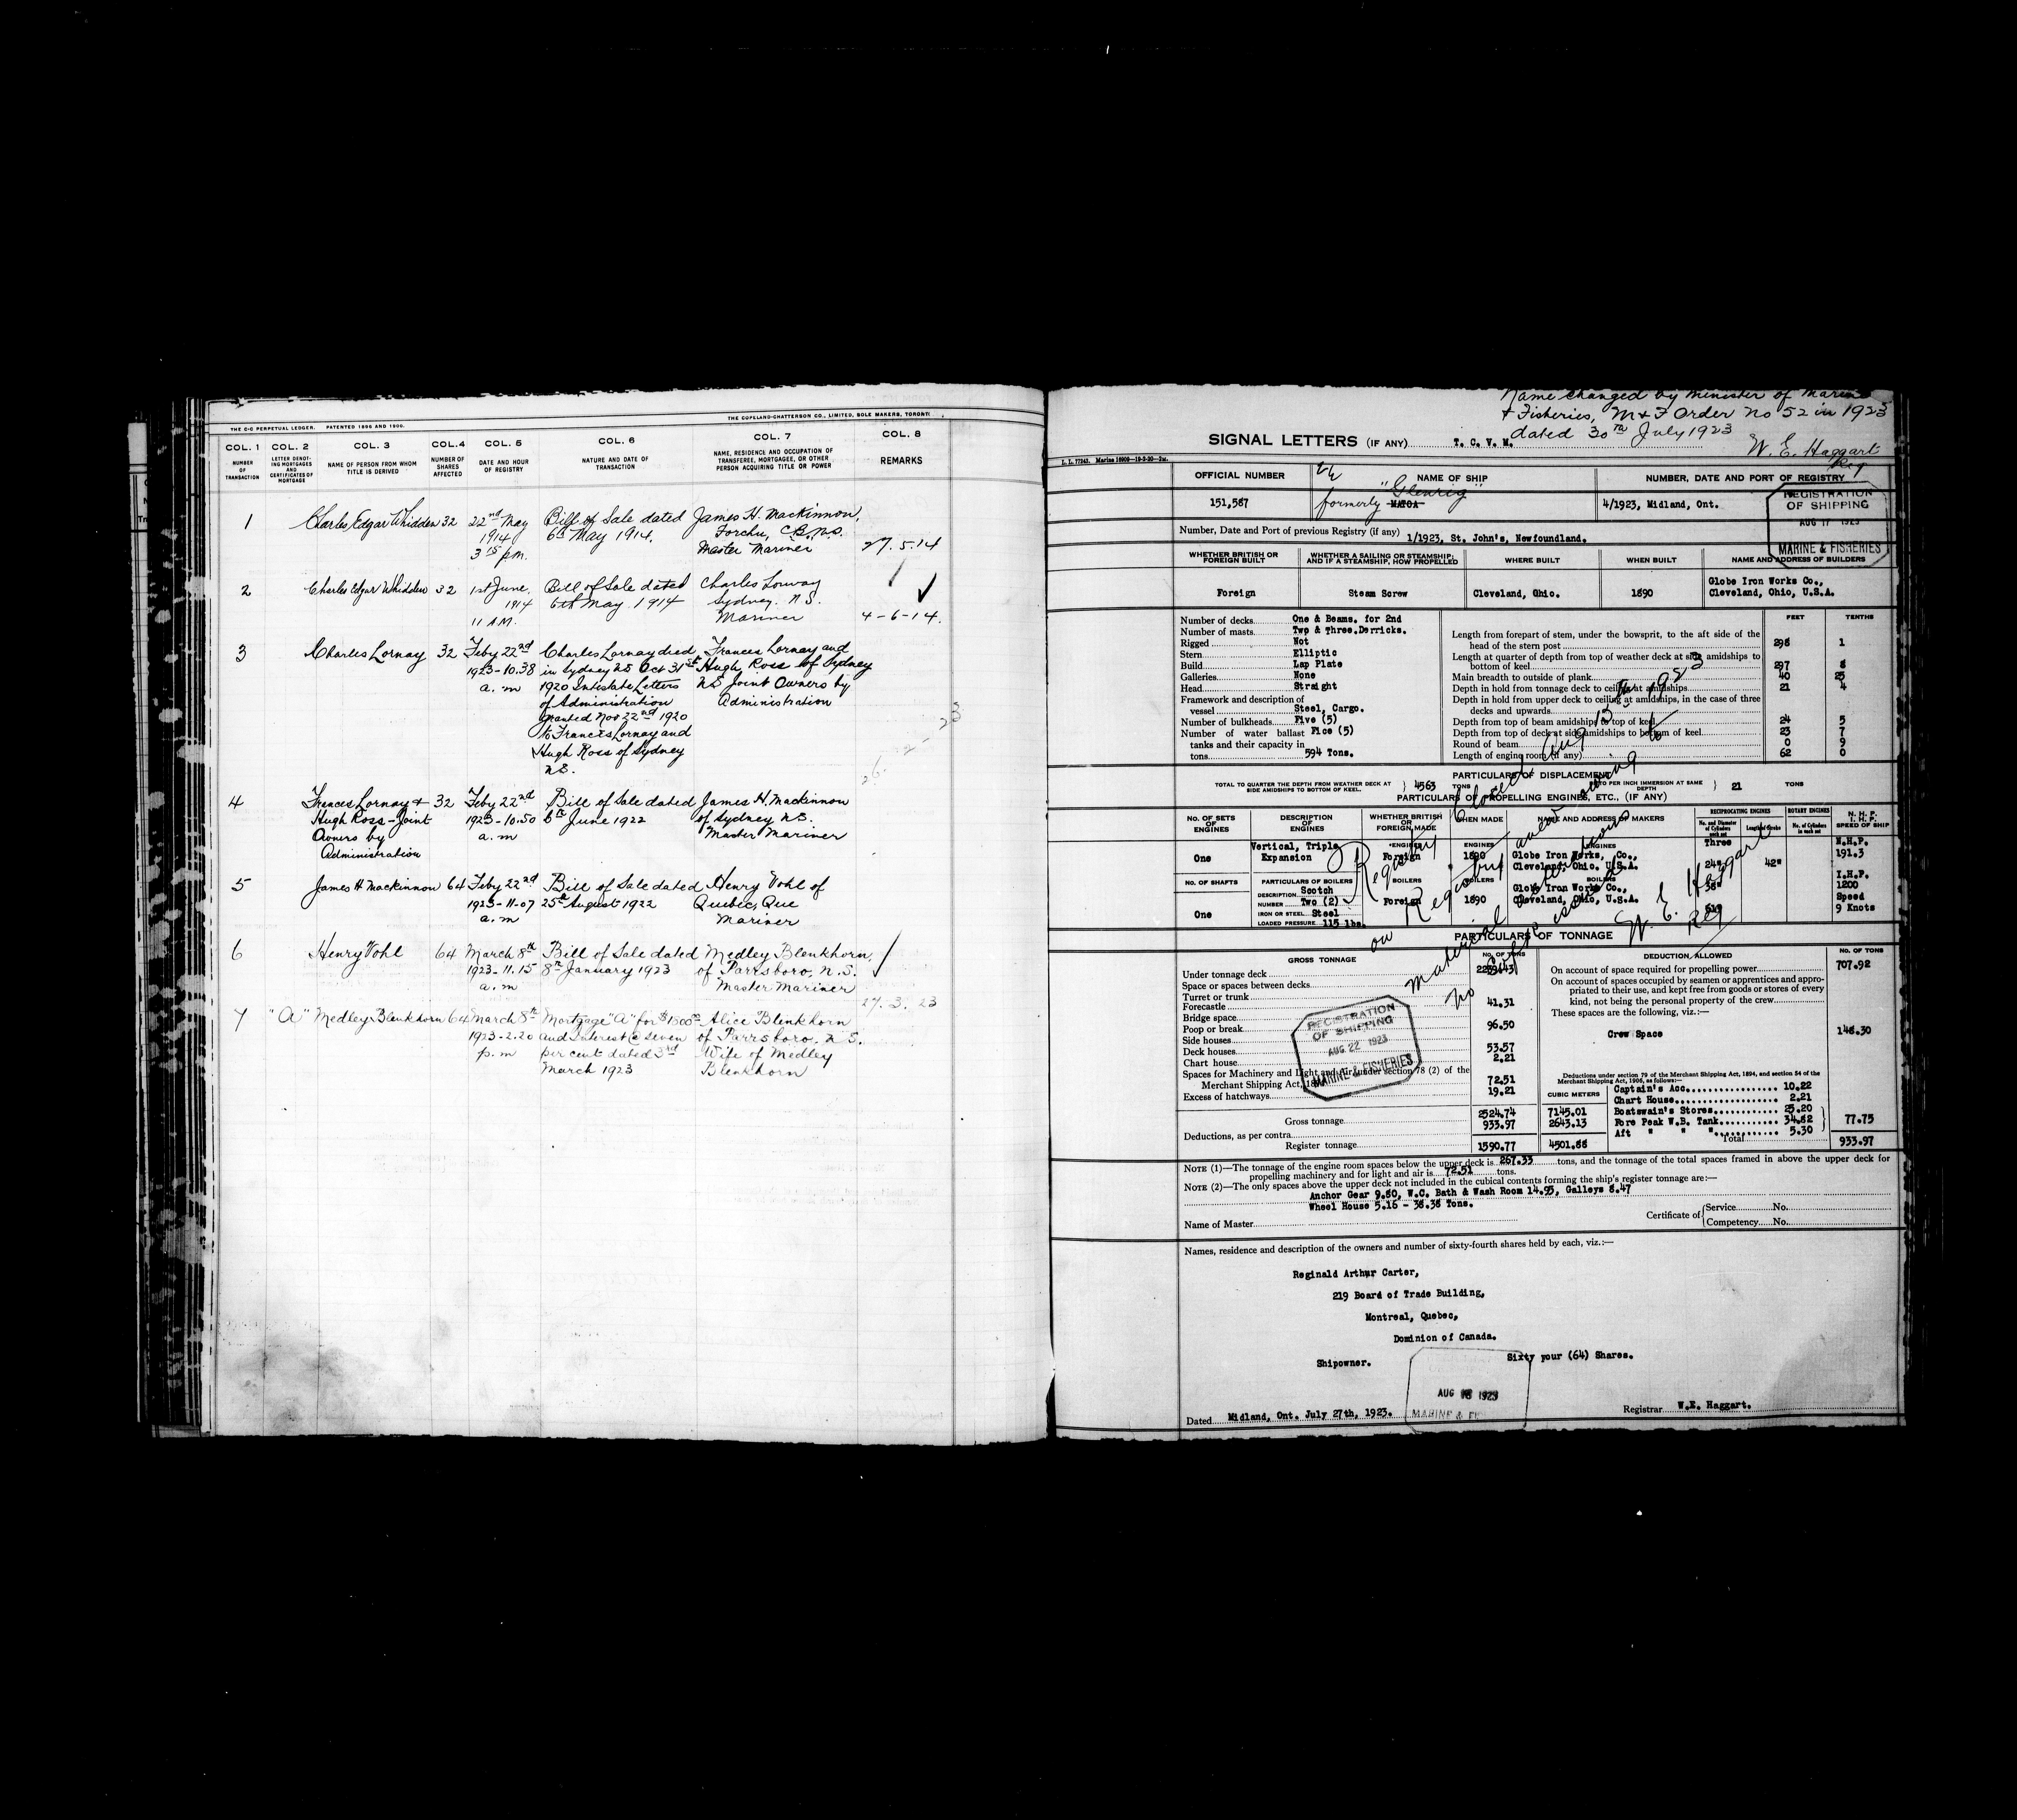 THE C-C PERPETUAL LEDGER. PATENTED 1896 AND 1900.
THE COPELAND-CHATTERSON CO., LIMITED, SOLE MAKERS, TORONTO
COL. 1 COL. 2 COL. 3 COL. 4 COL. 5 COL. 6 COL. 7 COL. 8
NUMBER OF TRANSACTION
LETTER DENOTING MORTGAGES AND CERTIFICATES OF MORTGAGE
NAME OF PERSON FROM WHOM TITLE IS DERIVED
NUMBER OF SHARES AFFECTED
DATE AND HOUR OF REGISTRY
NATURE AND DATE OF TRANSACTION
NAME, RESIDENCE AND OCCUPATION OF TRANSFEREE, MORTGAGEE, OR OTHER PERSON ACQUIRING TITLE OR POWER
REMARKS
1 Charles Edgar Whidden 32 22nd May Bill of Sale dated James H. Mackinnon,
1914 6th May 1914. Forchu, C.B. N.S.
3 15 p.m. Master Mariner 27.5.14
2 Charles Edgar Whidden 32 1st June, Bill of Sale dated Charles Lorway
1914 6th May 1914 Sydney. N.S.
11 A.M. Mariner 4-6-14.
3 Charles Lornay 32 Feby 22nd Charles Lornay died Frances Lornay and
1923-10.38 in Sydney N.S Oct 31st Hugh Ross of Sydney
a.m 1920 Intestate Letters N.S Joint Owners by
of Administration Administration
granted Nov 22nd 1920
to Frances Lornay and
Hugh Ross of Sydney
N.S.
4 Frances Lornay & 32 Feby 22nd Bill of Sale dated James H. Mackinnon
Hugh Ross-Joint 1923-10.50 6th June 1922 of Sydney N.S.
Owners by a.m Master Mariner
Administration
5 James H Mackinnon 64 Feby 22nd Bill of Sale dated Henry Vohl of
1923-11-07 25th August 1922 Quebec, Que
a.m Mariner
6 Henry Vohl 64 March 8th Bill of Sale dated Medley Blenkhorn,
1923-11.15 8th January 1923 of Parrsboro, N.S.
a.m Master Mariner
27.3.23
7 "A" Medley Blenkhorn 64 March 8th Mortgage "A" for $1500 Alice Blenkhorn
1923-2.20 and Interest @ seven of Parrsboro, N.S.
p.m per cent dated 3rd Wife of Medley
March 1923 Blenkhorn
Name changed by Minister of Marine
& Fisheries, M & F Order No 52 in 1923
dated 30th July 1923
W. E. Haggart
Reg
SIGNAL LETTERS (IF ANY) T. C. V. M.
L. L. 77242. Marine
OFFICIAL NUMBER NAME OF SHIP NUMBER, DATE AND PORT OF REGISTRY
"Glenrig"
151,587 formerly MATOA 4/1923, Midland, Ont.
REGISTRATION OF SHIPPING
AUG 17 1923
MARINE & FISHERIES
Number, Date and Port of previous Registry (if any) 1/1923, St. John's, Newfoundland.
WHETHER BRITISH OR FOREIGN BUILT
WHETHER A SAILING OR STEAMSHIP; AND IF A STEAMSHIP, HOW PROPELLED
WHERE BUILT WHEN BUILT NAME AND ADDRESS OF BUILDERS
Foreign Steam Screw Cleveland, Ohio. 1890 Globe Iron Works Co.,
Cleveland, Ohio, U.S.A.
FEET TENTHS
Number of decks One & Beams. for 2nd
Number of masts Two & Three.Derricks.
Rigged Not
Stern Elliptic
Build Lap Plate
Galleries None
Head Straight
Framework and description of
vessel Steel, Cargo.
Number of bulkheads Five (5)
Number of water ballast Fice (5)
tanks and their capacity in
tons 594 Tons.
Length from forepart of stem, under the bowsprit, to the aft side of the
head of the stern post 298 1
Length at quarter of depth from top of weather deck at side amidships to
bottom of keel 297 8
Main breadth to outside of plank 40 25
Depth in hold from tonnage deck to ceiling at amidships 21 4
Depth in hold from upper deck to ceiling at amidships, in the case of three
decks and upwards
Depth from top of beam amidships to top of keel 24 5
Depth from top of deck at side amidships to bottom of keel 23 7
Round of beam 0 9
Length of engine room (if any) 62 0
PARTICULARS OF DISPLACEMENT
TOTAL TO QUARTER THE DEPTH FROM WEATHER DECK AT SIDE AMIDSHIPS TO BOTTOM OF KEEL. 4563 TONS
DITTO PER INCH IMMERSION AT SAME DEPTH 21 TONS
PARTICULARS OF PROPELLING ENGINES, ETC., (IF ANY)
NO. OF SETS OF ENGINES
DESCRIPTION OF ENGINES
WHETHER BRITISH OR FOREIGN MADE
WHEN MADE
NAME AND ADDRESS OF MAKERS
RECIPROCATING ENGINES
No. and Diameter of Cylinders in each set
Length of Stroke
ROTARY ENGINES
No. of Cylinders in each set
N. H. P.
I. H. P.
SPEED OF SHIP
ENGINES ENGINES ENGINES
One Vertical, Triple Expansion Foreign 1890 Globe Iron Works, Co.,
Cleveland, Ohio, U.S.A.
Three
24" 42"
38"
61"
N.H.P.
191.3
I.H.P.
1200
Speed
9 Knots
NO. OF SHAFTS PARTICULARS OF BOILERS BOILERS BOILERS BOILERS
One
DESCRIPTION Scotch
NUMBER Two (2)
IRON OR STEEL Steel
LOADED PRESSURE 115 lbs.
Foreign 1890 Globe Iron Works Co.,
Cleveland, Ohio, U.S.A.
Registry Closed Aug 13th 1923
on Registry anew owing to
material alterations
No Cert. issued
W. E. Haggart
Reg
PARTICULARS OF TONNAGE
GROSS TONNAGE NO. OF TONS
Under tonnage deck
Space or spaces between decks
Turret or trunk
Forecastle 41.31
Bridge space
Poop or break 96.50
Side houses
Deck houses 53.57
Chart house 2.21
Spaces for Machinery and Light and Air under section 78 (2) of the
Merchant Shipping Act, 1894 72.51
Excess of hatchways 19.21
REGISTRATION OF SHIPPING
AUG 22 1923
MARINE & FISHERIES
CUBIC METERS
Gross tonnage 2524.74 7145.01
Deductions, as per contra 933.97 2643.13
Register tonnage 1590.77 4501.88
DEDUCTION ALLOWED NO. OF TONS
On account of space required for propelling power 707.92
On account of spaces occupied by seamen or apprentices and appro-
priated to their use, and kept free from goods or stores of every
kind, not being the personal property of the crew
These spaces are the following, viz.:—
Crew Space 148.30
Deductions under section 79 of the Merchant Shipping Act, 1894, and section 54 of the
Merchant Shipping Act, 1906, as follows:—
Captain's Acc. 10.22
Chart House 2.21
Boatswain's Stores 25.20
Fore Peak W.B. Tank 34.82
Aft " " " 5.30
77.75
Total 933.97
NOTE (1)—The tonnage of the engine room spaces below the upper deck is 267.33 tons, and the tonnage of the total spaces framed in above the upper deck for
propelling machinery and for light and air is 72.51 tons.
NOTE (2)—The only spaces above the upper deck not included in the cubical contents forming the ship's register tonnage are:—
Anchor Gear 9.80, W.C. Bath & Wash Room 14.95, Galleys 8.47
Wheel House 5.16 - 38.38 Tons.
Name of Master
Certificate of Service No.
Competency No.
Names, residence and description of the owners and number of sixty-fourth shares held by each, viz.:—
Reginald Arthur Carter,
219 Board of Trade Building,
Montreal, Quebec,
Dominion of Canada.
Shipowner. Sixty your (64) Shares.
AUG 1923
MARINE & FI
Dated Midland, Ont. July 27th, 1923.
Registrar W.E. Haggart.